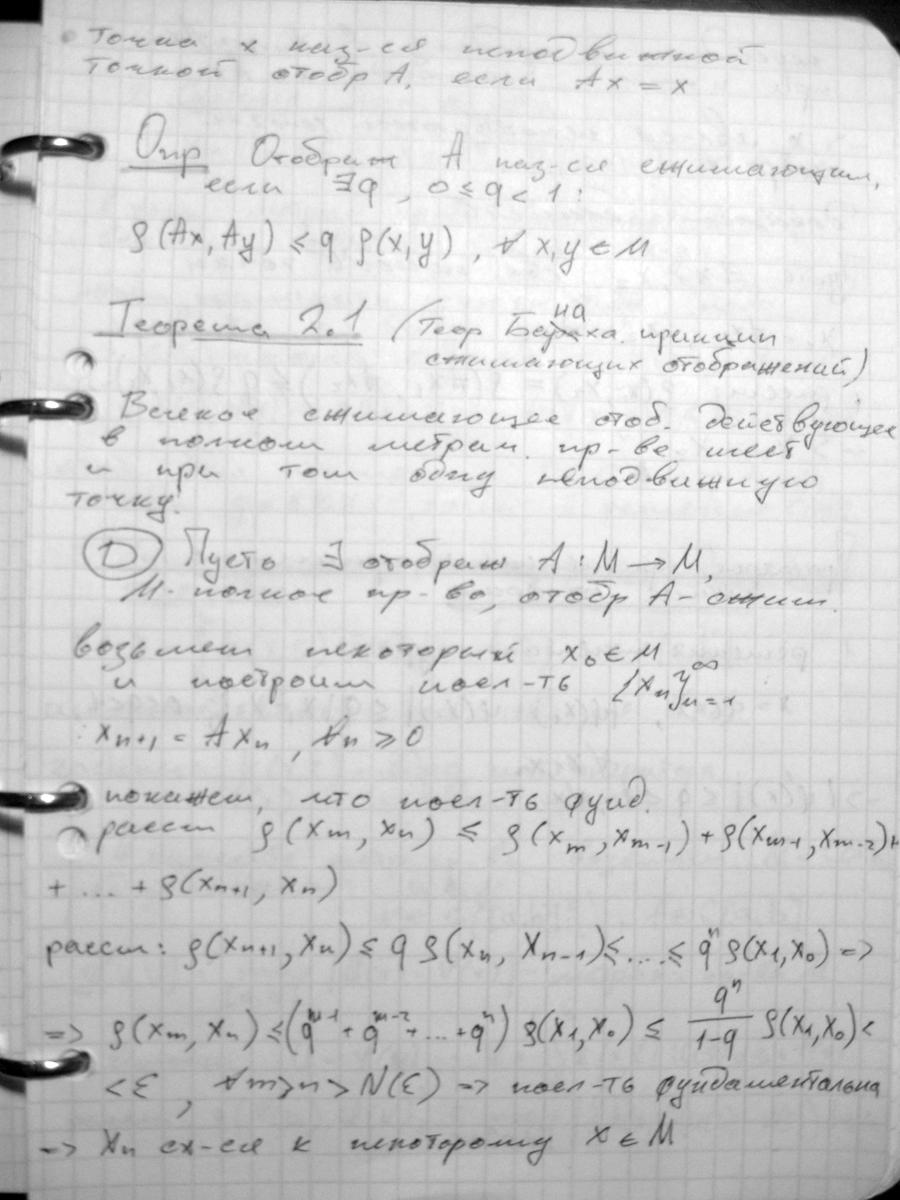 точка x наз-ся неподвижной
точкой отобр A, если Ax = x
Опр Отображ A наз-ся сжимающим,
если ∃q, 0 ≤ q < 1:
ρ(Ax, Ay) ≤ q ρ(x, y), ∀ x, y ∈ M
Теорема 2.1 (Теор Банаха. принцип
сжимающих отображений)
Всякое сжимающее отоб. действующее
в полном метрич. пр-ве имеет
и при том одну неподвижную
точку.
D Пусть ∃ отображ A : M → M,
M - полное пр-во, отобр A - сжим.
возьмем некоторый x₀ ∈ M
и построим посл-ть {xₙ}ₙ₌₁^∞
xₙ₊₁ = Axₙ, ∀n ≥ 0
покажем, что посл-ть фунд.
рассм ρ(xₘ, xₙ) ≤ ρ(xₘ, xₘ₋₁) + ρ(xₘ₋₁, xₘ₋₂) +
+ ... + ρ(xₙ₊₁, xₙ)
рассм: ρ(xₙ₊₁, xₙ) ≤ q ρ(xₙ, xₙ₋₁) ≤ .... ≤ qⁿ ρ(x₁, x₀) =>
=> ρ(xₘ, xₙ) ≤ (qᵐ⁻¹ + qᵐ⁻² + ... + qⁿ) ρ(x₁, x₀) ≤ qⁿ/(1-q) ρ(x₁, x₀) <
< ε, ∀m > n > N(ε) => посл-ть фундаментальна
=> xₙ сх-ся к некоторому x ∈ M